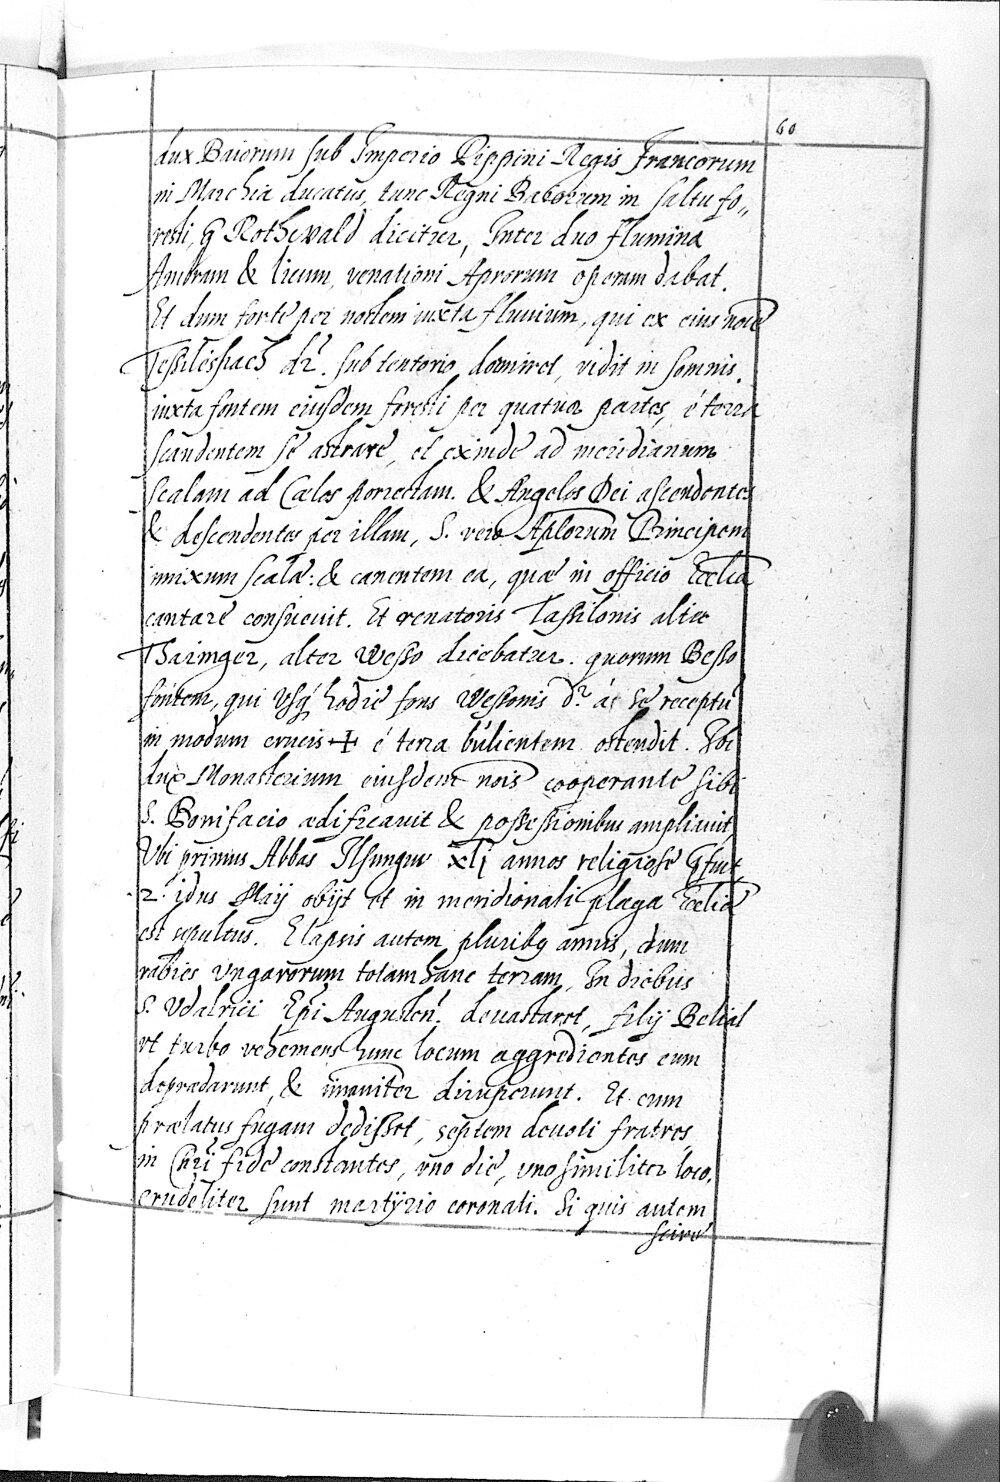 60
dux Baiorum sub Imperio Pippini Regis Francorum
in Marchia ducatus, tunc Regni Baborum in saltu fo„
resti, q Rothevald dicitur, Inter duo flumina
Ambram & licum, venationi Aprorum operam dabat.
Et dum forte per noctem iuxta fluvium, qui ex eius noie
Tessilespach dr. sub tentorio domiret, vidit in somnis,
iuxta fontem eiusdem foresti per quatuor partes, é terra
scandentem se astrare, et exinde ad meridianum
scalam ad Cœlos porrectam. & Angelos Dei ascendentes
& descendentes per illam, S. vero Aplorum Principem
innixum scalæ: & canentem ea, quæ in officio Ecclia
cantare consuevit. Et venatoris Tassilonis alter
Tharinger, alter Wesso dicebatur. quorum Besso
fontem, qui vsq hodie fons Wessonis dr. ac se receptu
in modum crucis ✝ é terra bulientem ostendit. Ibi
dux Monasterium eiusdem nois cooperante sibi
S. Bonifacio ædificavit & possessionibus ampliavit,
Vbi primus Abbas Ilsungus xlij annos religiose pfuit,
2. idus Maij obijt et in meridionali plaga Ecclia
est sepultus. Elapsis autem pluribq annis, dum
rabies Vngarorum totam hanc terram, In diebus
S. Vdalrici Epi Augusten. devastaret, filij Belial
vt turbo vehemens hunc locum aggredientes eum
deprædarunt, & vnaniter diruperunt. Et cum
prælatus fugam dedisset, septem devoti fratres
in Chri fide constantes, vno die, vno similiter loco,
crudeliter sunt martÿrio coronati. Si quis autem
scire